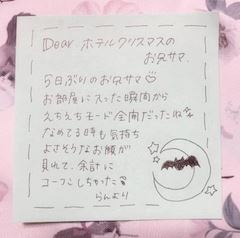 Dear ホテルクリスマスの
お兄サマ
5日ぶりのお兄サマ♡
お部屋に入った瞬間から
えちえちモード全開だったね
なめてる時も気持ち
よさそうなお顔が
見れて、余計に
コーフンしちゃった
らんより